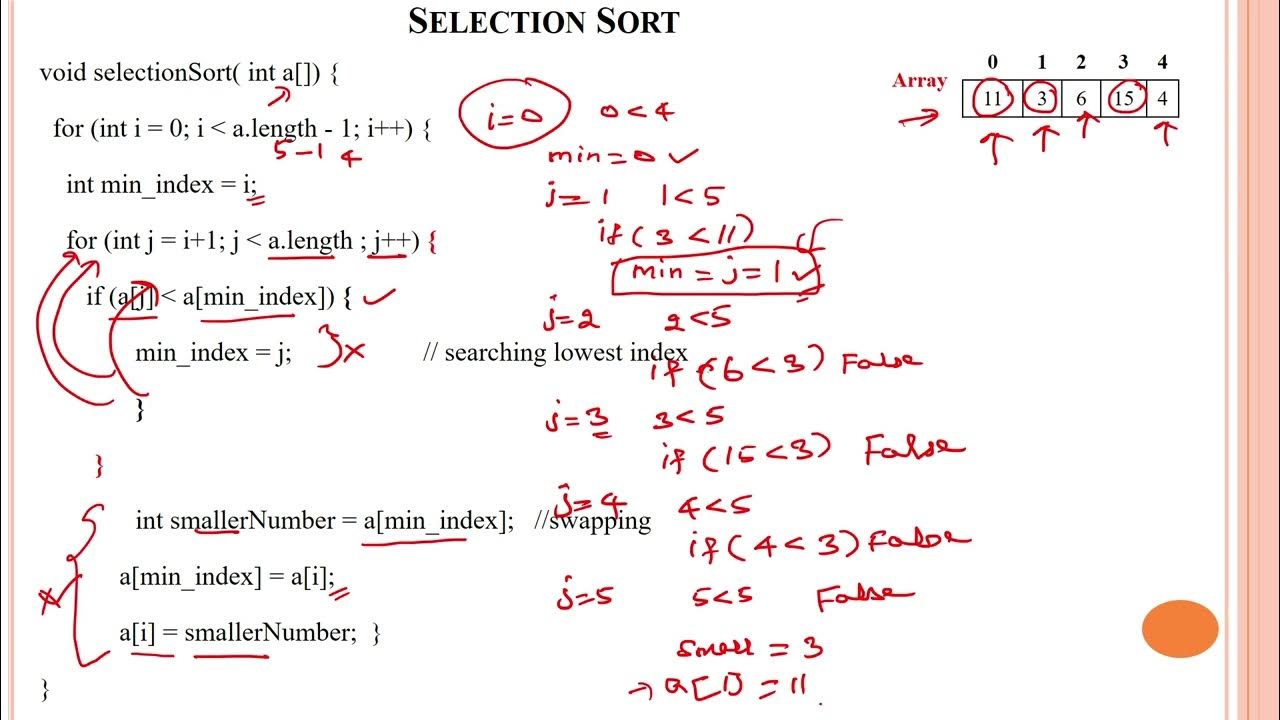 SELECTION SORT
void selectionSort( int a[]) {
for (int i = 0; i < a.length - 1; i++) {
5-1 4
int min_index = i;
for (int j = i+1; j < a.length ; j++) {
if (a[j] < a[min_index]) {
min_index = j; } x // searching lowest index
}
}
int smallerNumber = a[min_index]; //swapping
a[min_index] = a[i];
a[i] = smallerNumber; }
}
0 1 2 3 4
Array 11 3 6 15 4
i=0 0<4
min=0
j=1 1<5
if(3<11)
min = j=1
j=2 2<5
if (6<3) False
j=3 3<5
if (15<3) False
j=4 4<5
if(4<3) False
j=5 5<5 False
small = 3
→ a[1] = 11